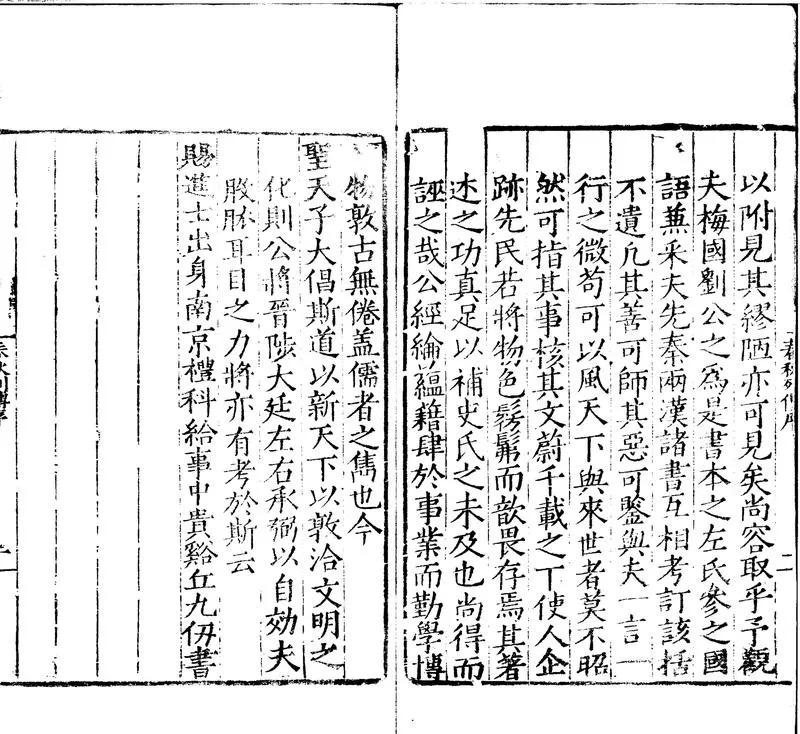 以附見其繆陋亦可見矣尚容取乎予觀
夫梅國劉公之為是書本之左氏參之國
語兼采夫先秦兩漢諸書互相考訂該括
不遺凢其善可師其惡可鑒與夫一言一
行之微苟可以風天下與來世者莫不昭
然可指其事核其文蔚千載之下使人企
跡先民若將物色髣髴而歆畏存焉其著
述之功真足以補史氏之未及也尚得而
誣之哉公經綸蘊藉肆於事業而勤學博
春秋列傳序
二
物敦古無倦盖儒者之雋也今
聖天子大倡斯道以新天下以敦洽文明之
化則公將晉陟大廷左右承弼以自効夫
股肱耳目之力將亦有考於斯云
賜進士出身南京禮科給事中貴谿丘九仞書
春秋列傳序
二